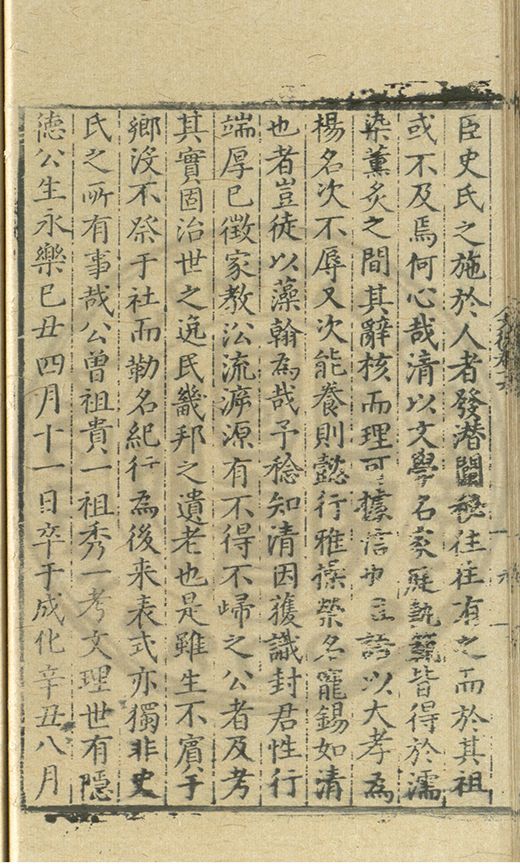 臣史氏之施於人者發潛闡秘往往有之而於其祖
或不及焉何心哉清以文學名家雁埶藝皆得於濡
染薰炙之間其辭核而理可據信也且論以大孝為
楊名次不辱又次能養則懿行雅操榮名寵錫如清
也者豈徒以藻翰為哉予稔知清因獲識封君性行
端厚已徵家教訟流泝源有不得不歸之公者及考
其實固治世之逸民畿邦之遺老也是雖生不賓于
鄉沒不祭于社而勒名紀行為後来表式亦獨非史
氏之所有事哉公曾祖貴一祖秀一考文理世有隱
德公生永樂巳丑四月十一日卒于成化辛丑八月